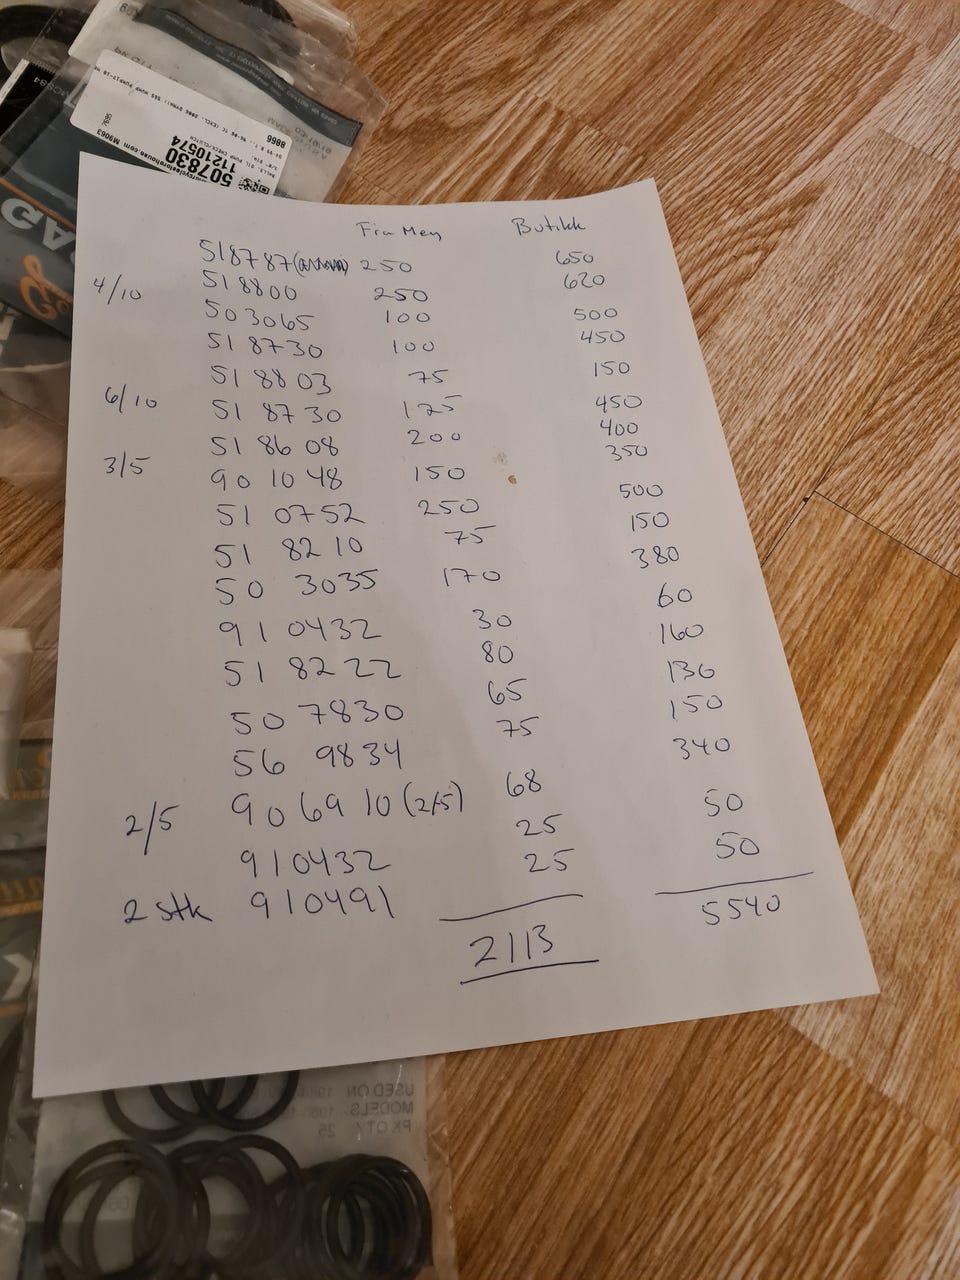 507830
11210574
8866
M9063
Fra Meg Butikk
518787 250 650
4/10 518800 250 620
503065 100 500
518730 100 450
518803 75 150
6/10 518730 125 450
518608 200 400
3/5 901048 150 350
510752 250 500
518210 75 150
503035 170 380
910432 30 60
518222 80 160
507830 65 130
569834 75 150
2/5 906910 (2/5) 68 340
910432 25 50
2 stk 910491 25 50
2113 5540
USED ON
MODELS
PK QTY 25